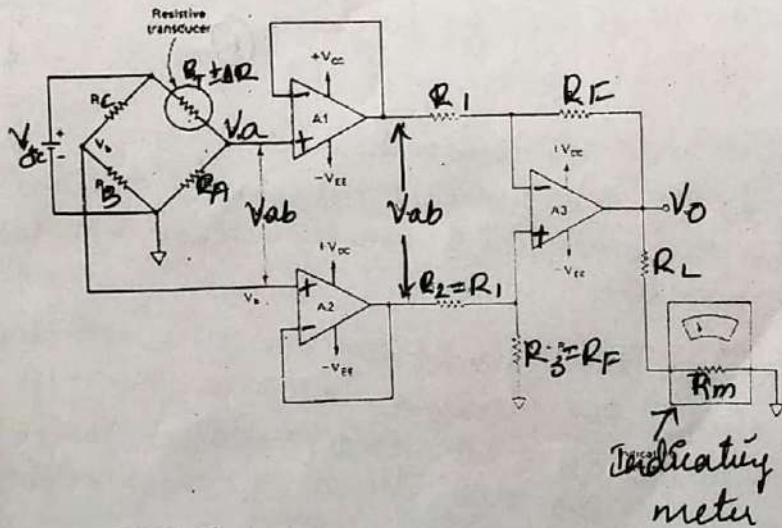 Resistive
transducer
R_T ± ΔR
R_C
V_dc
+
-
V_b
V_a
R_B
R_A
V_ab
+V_CC
-
A1
+
-V_EE
V_ab
R_1
R_F
+V_CC
-
A3
+
-V_EE
V_O
V_b
+V_CC
+
A2
-
-V_EE
R_2 = R_1
R_3 = R_F
R_L
R_m
Indicating
meter